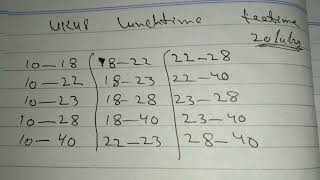 uk48 Lunchtime Teatime
10-18 18-22 22-28
10-22 18-23 22-40
10-23 18-28 23-28
10-28 18-40 23-40
10-40 22-23 28-40